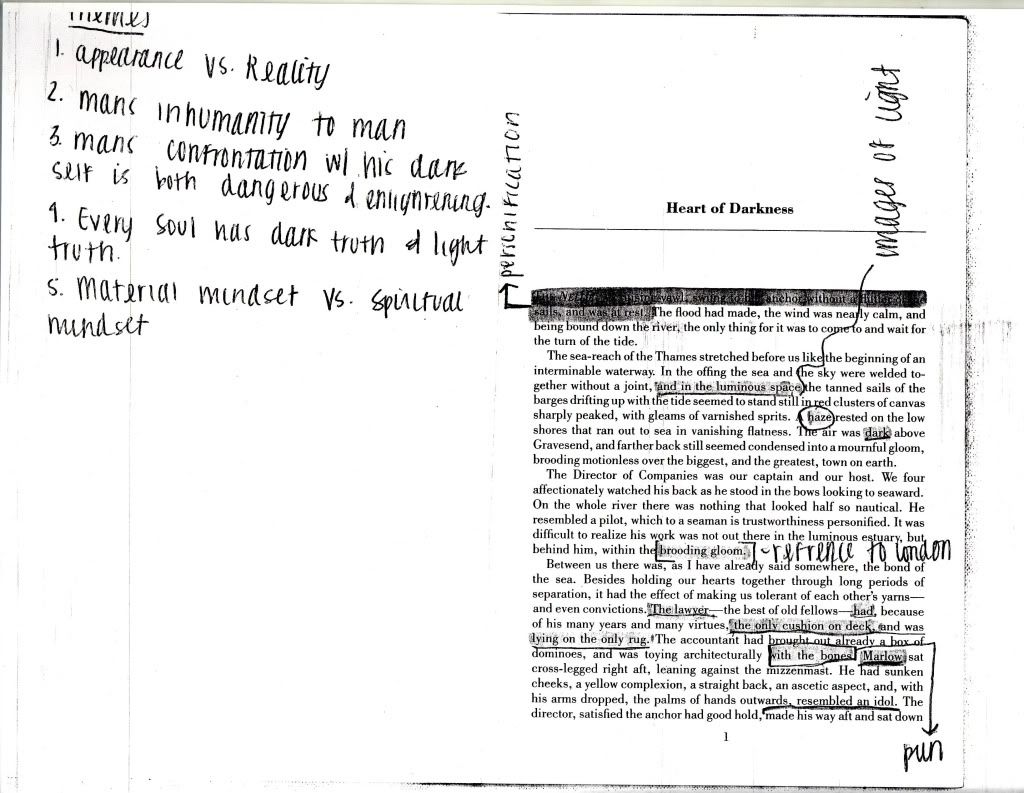 Themes
1. appearance vs. Reality
2. mans inhumanity to man
3. mans confrontation w/ his dark
self is both dangerous & enlightening.
4. Every soul has dark truth & light
truth.
5. Material mindset vs. spiritual
mindset
personification
images of light
Heart of Darkness
yawl, swung to her anchor without a flutter of the
sails, and was at rest. The flood had made, the wind was nearly calm, and
being bound down the river, the only thing for it was to come to and wait for
the turn of the tide.
The sea-reach of the Thames stretched before us like the beginning of an
interminable waterway. In the offing the sea and the sky were welded to-
gether without a joint, and in the luminous space the tanned sails of the
barges drifting up with the tide seemed to stand still in red clusters of canvas
sharply peaked, with gleams of varnished sprits. A haze rested on the low
shores that ran out to sea in vanishing flatness. The air was dark above
Gravesend, and farther back still seemed condensed into a mournful gloom,
brooding motionless over the biggest, and the greatest, town on earth.
The Director of Companies was our captain and our host. We four
affectionately watched his back as he stood in the bows looking to seaward.
On the whole river there was nothing that looked half so nautical. He
resembled a pilot, which to a seaman is trustworthiness personified. It was
difficult to realize his work was not out there in the luminous estuary, but
behind him, within the brooding gloom. - refrence to london
Between us there was, as I have already said somewhere, the bond of
the sea. Besides holding our hearts together through long periods of
separation, it had the effect of making us tolerant of each other's yarns—
and even convictions. The lawyer—the best of old fellows—had, because
of his many years and many virtues, the only cushion on deck, and was
lying on the only rug. The accountant had brought out already a box of
dominoes, and was toying architecturally with the bones. Marlow sat
cross-legged right aft, leaning against the mizzenmast. He had sunken
cheeks, a yellow complexion, a straight back, an ascetic aspect, and, with
his arms dropped, the palms of hands outwards, resembled an idol. The
director, satisfied the anchor had good hold, made his way aft and sat down
1
pun